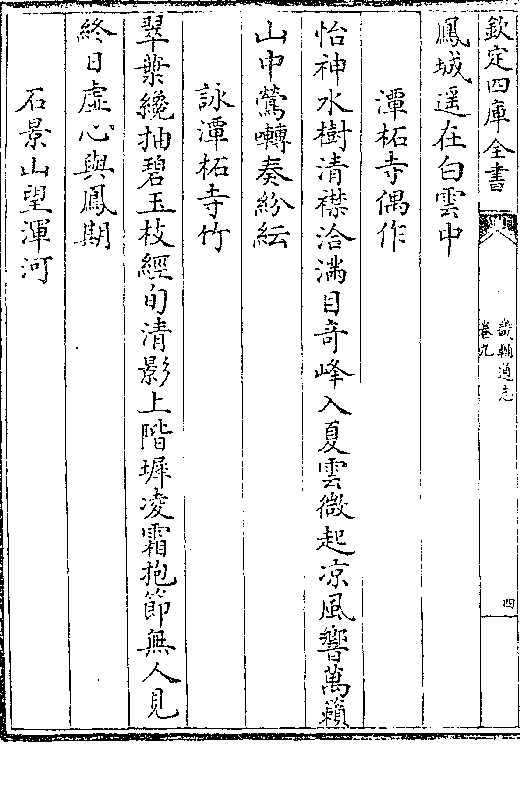 欽定四庫全書
畿輔通志
卷九
四
鳳城遥在白雲中
潭柘寺偶作
怡神水樹清襟洽滿目奇峰入夏雲微起凉風響萬籟
山中鶯囀奏紛紜
詠潭柘寺竹
翠葉纔抽碧玉枝經旬清影上階墀凌霜抱節無人見
終日虚心與鳳期
石景山望渾河